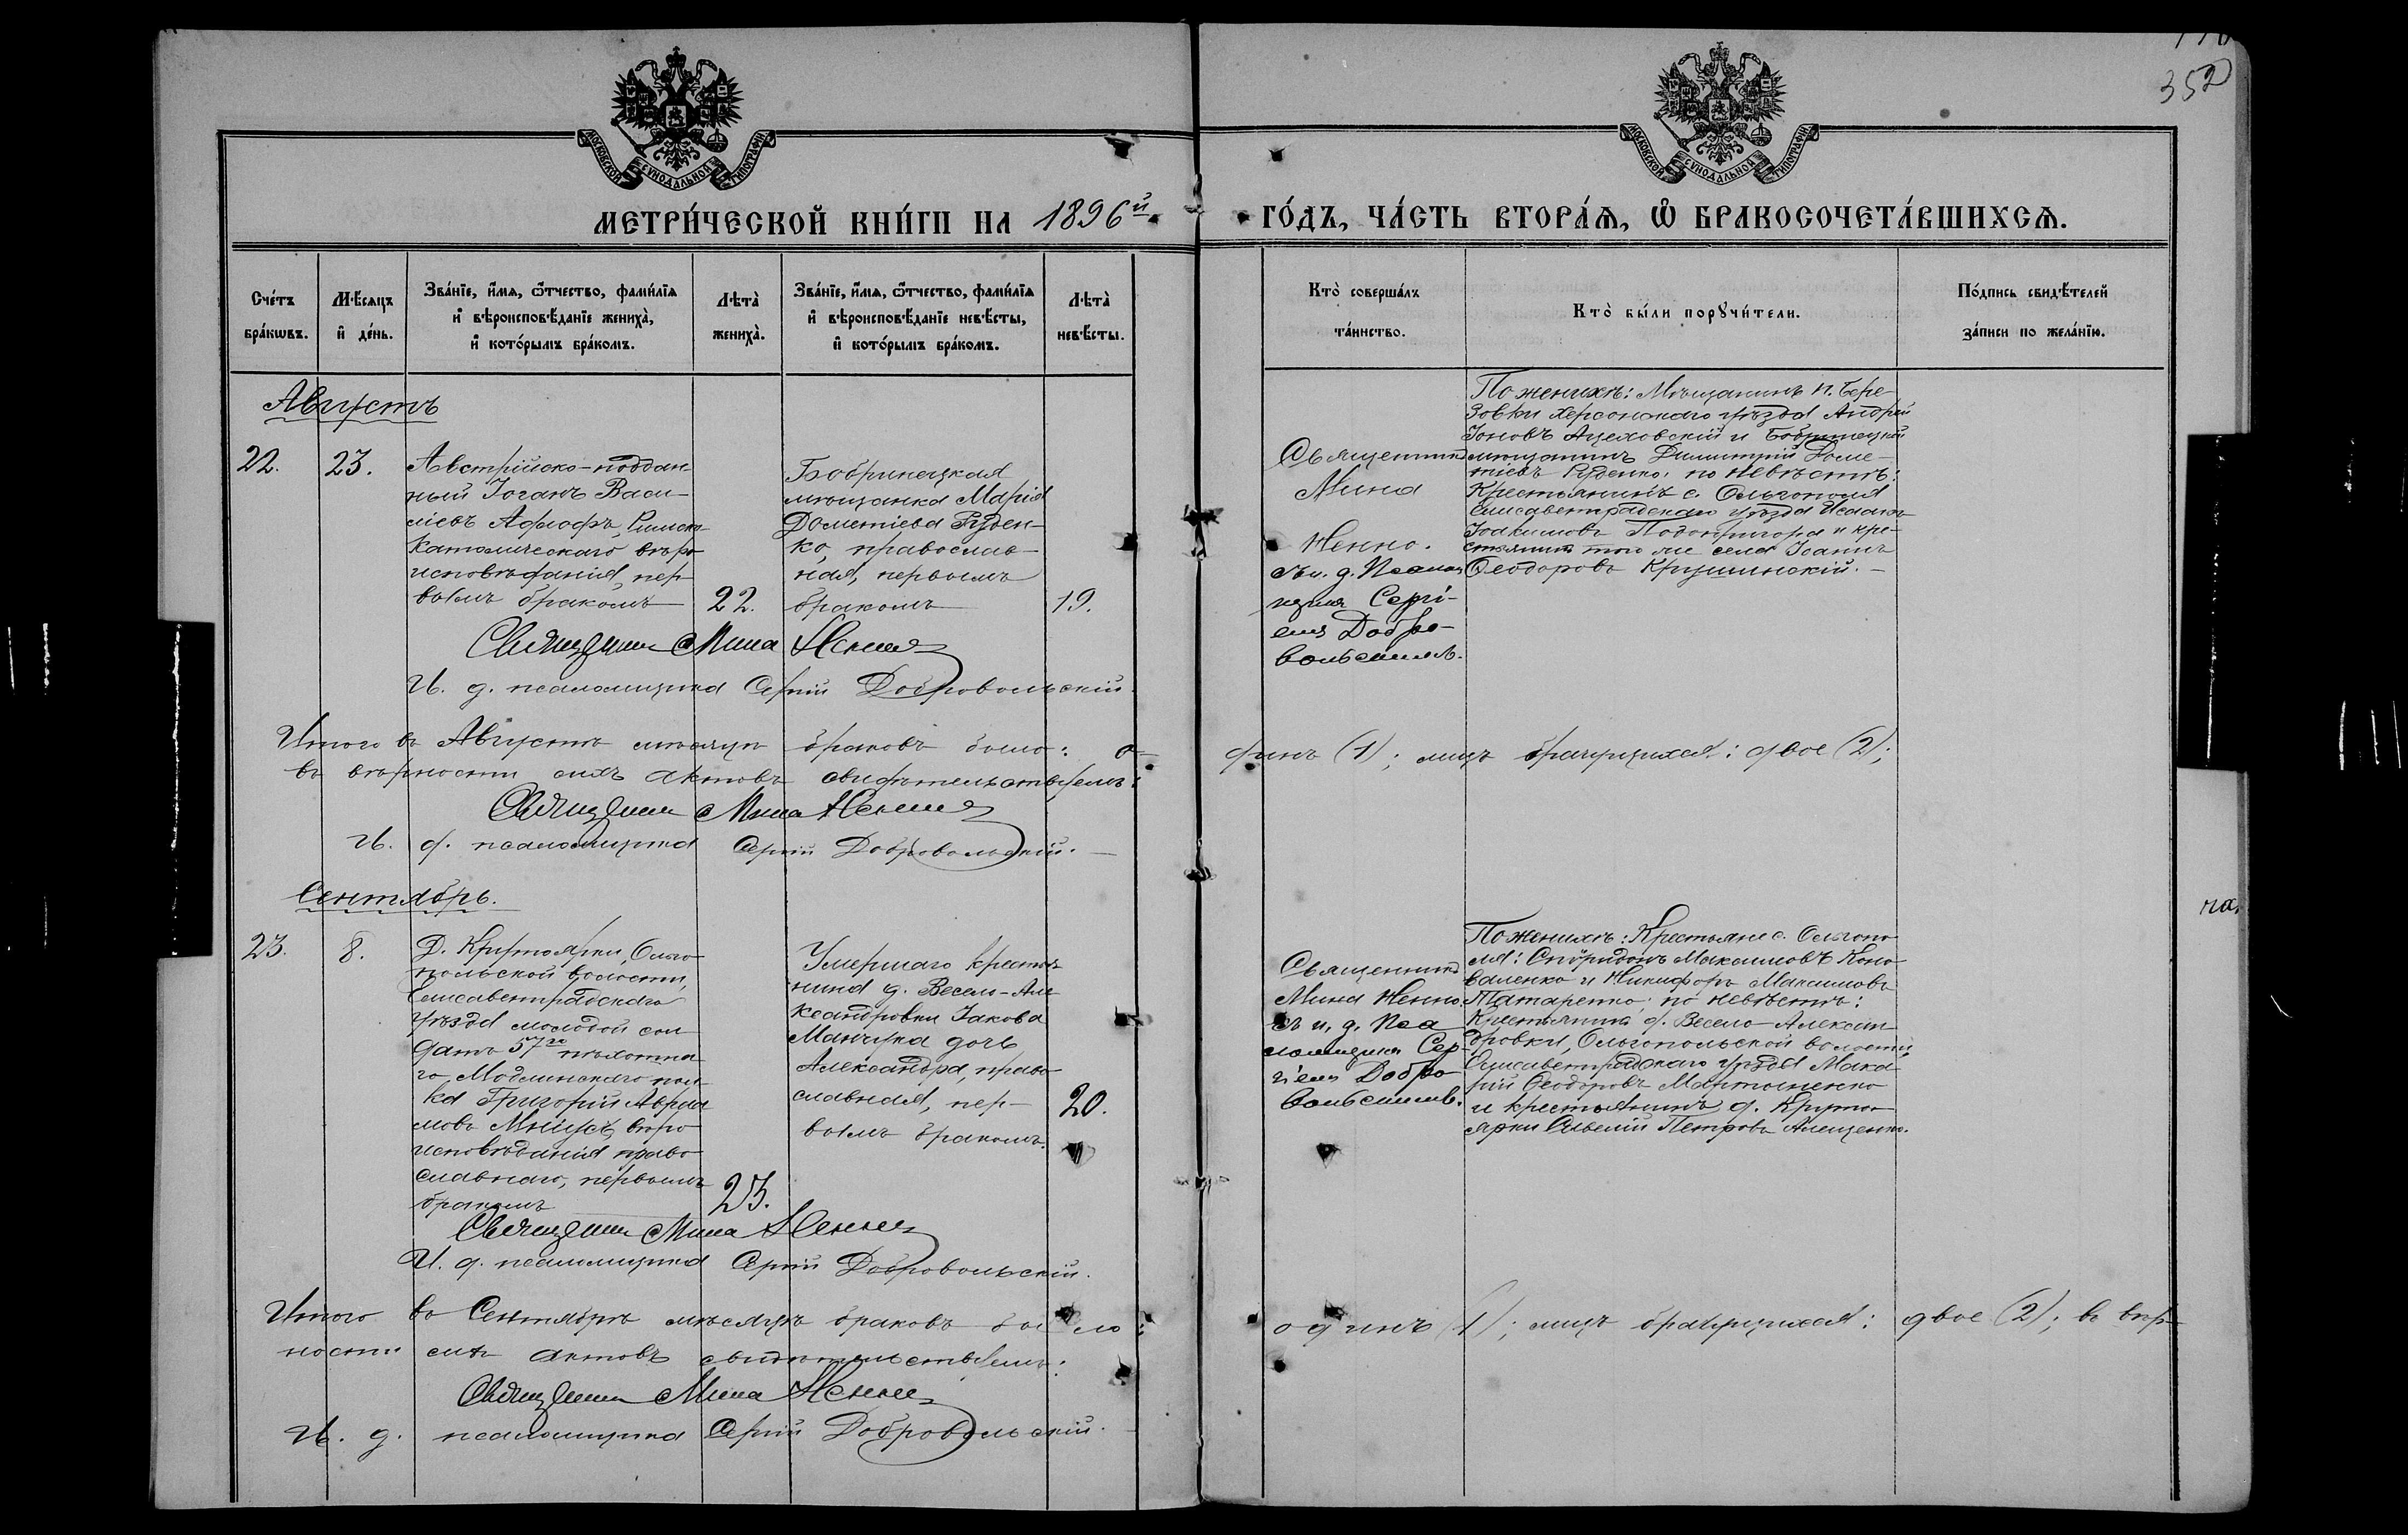 352
МОСКОВСКОЙ СУНОДАЛЬНОЙ ТИПОГРАФІИ
МОСКОВСКОЙ СУНОДАЛЬНОЙ ТИПОГРАФІИ
МЕТРИ́ЧЕСКОЙ КНИ́ГИ НА 1896й
ГО́ДЪ, ЧА́СТЬ ВТОРА́Ѧ, Ѿ БРАКОСОЧЕТА́ВШИХСѦ.
Сче́тъ
бра́кѡвъ.
Мѣ́сяцъ
и҆ де́нь.
Зва́нїе, и҆́мѧ, ѻ҆́тчество, фами́лїѧ
и҆ вѣроисповѣ́данїе жениха̀,
и҆ кото́рымъ бра́комъ.
Лѣта̀
жениха̀.
Зва́нїе, и҆́мѧ, ѻ҆́тчество, фами́лїѧ
и҆ вѣроисповѣ́данїе невѣ́сты,
и҆ кото́рымъ бра́комъ.
Лѣта̀
невѣ́сты.
Кто̀ соверша́лъ
та́инство.
Кто̀ бы́ли порꙋчи́тели.
По́дпись свидѣ́телей
за́писи по жела́нїю.
Августъ
22.
23.
Австрійско-поддан
ный Іоганъ Васи-
ліевъ Римско-
Католическаго вѣро
исповѣданія, пер-
вымъ бракомъ
22.
Бобринецкая
мѣщанка Марія
Дометіева Руден-
ко, православ-
ная, первымъ
бракомъ
19.
Священникъ
Мина
Ненно.
съ и. д. Псалом
щика Сергі-
емъ Добро-
вольскимъ.
По женихѣ: Мѣщанинъ м. Бере-
зовки Херсонскаго уѣзда Андрей
Іоновъ и Бобринецкій
мѣщанинъ Димитрій Доме-
тіевъ Руденко; по невѣстѣ:
Крестьянинъ с. Ольгополя
Елисаветградскаго уѣзда Исаакъ
Іоакимовъ Подопригора и кре-
стьянинъ того же села Іоаннъ
Ѳеодоровъ Крушинскій.-
Священникъ Мина Ненно
И. д. псаломщика Сергій Добровольскій.
Итого въ Августѣ мѣсяцѣ браковъ было: о-
динъ (1); лицъ брачущихся: двое (2);
въ вѣрности сихъ актовъ свидѣтельствуемъ:
Священникъ Мина Ненно
И. д. псаломщика Сергій Добровольскій.
Сентябрь.
23.
8.
Д. Крутоярки, Ольго
польской волости,
Елисаветградскаго
уѣзда молодой сол
датъ 57го пѣхотна
го Модлинскаго пол
ка Григорій Авраа
мовъ вѣро
исповѣданія право
славнаго, первымъ
бракомъ
23.
Умершаго крестья
нина д. Весело-Але
ксандровки Іакова
дочь
Александра, право
славная, пер-
вымъ бракомъ.
20.
Священникъ
Мина Ненно
съ и. д. Пса
ломщика Сер-
гіемъ Добро
вольскимъ.
По женихѣ: Крестьяне с. Ольгопо
ля: Спѵридонъ Максимовъ Коно
валенко и Никифоръ Максимовъ
Татаренко; по невѣстѣ:
Крестьянинъ д. Весело-Алексан
дровки, Ольгопольской волости,
Елисаветградскаго уѣзда Мака-
рій Ѳеодоровъ Мартыненко
и крестьянинъ д. Круто-
ярки Савелій Петровъ Алещенко.
Священникъ Мина Ненно
И. д. псаломщика Сергій Добровольскій.
Итого въ Сентябрѣ мѣсяцѣ браковъ было:
одинъ (1); лицъ брачущихся: двое (2); въ вѣр-
ности сихъ актовъ свидѣтельствуемъ:
Священникъ Мина Ненно
И. д. псаломщика Сергій Добровольскій.